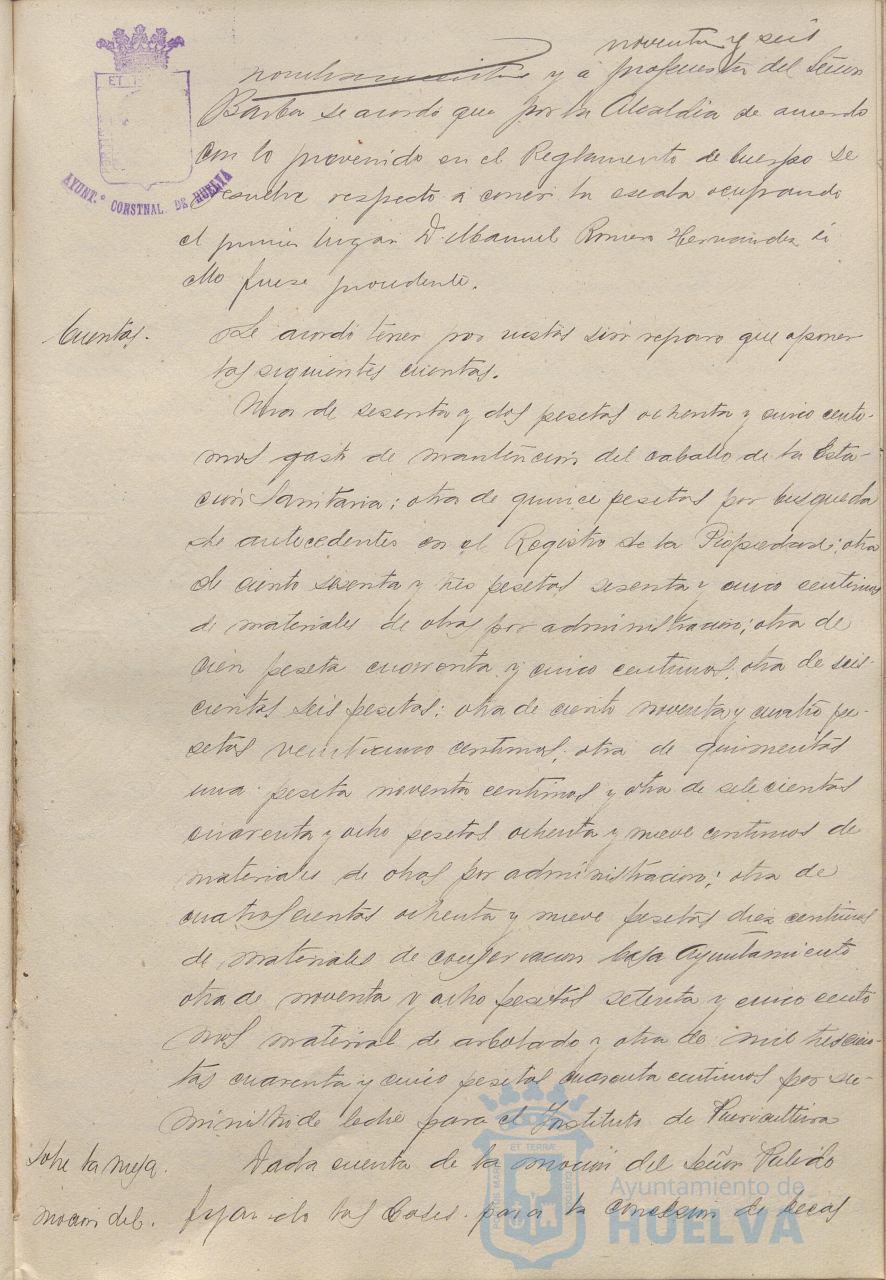 noventa y seis
nombramiento y á propuesta del Señor
Barba se acordó que por la Alcaldía de acuerdo
con lo prevenido en el Reglamento de Cuerpo se
resuelva respecto á correr la escala ocupando
el primer lugar D. Manuel Romero Hernandez si
ello fuese procedente.
ET TERRÆ
AYUNT.º CONSTNAL DE HUELVA
Cuentas.
Se acordó tener por vistas sin reparo que oponer
las siguientes cuentas.
Una de sesenta y dos pesetas ochenta y cinco centi-
mos gasto de mantencion del caballo de la Esta-
cion Sanitaria; otra de quince pesetas por busqueda
de antecedentes en el Registro de la Propiedad; otra
de ciento sesenta y tres pesetas sesenta y cinco centimos
de materiales de obras por administracion; otra de
cien peseta cuarenta y cinco centimos; otra de seis-
cientas seis pesetas; otra de ciento noventa y cuatro pe-
setas veinticinco centimos; otra de quinientas
una peseta noventa centimos y otra de setecientas
cuarenta y ocho pesetas ochenta y nueve centimos de
materiales de obras por administracion; otra de
cuatrocientas ochenta y nueve pesetas diez centimos
de materiales de conservacion casa Ayuntamiento
otra de noventa y ocho pesetas setenta y cinco centi
mos material de arbolado y otra de mil trescien-
tas cuarenta y cinco pesetas cuarenta centimos por su-
ministro de leche para el Instituto de Puericultura
Sobre la nueja.
Dada cuenta de la mocion del Señor Pulido
mocion del.
fijando las bases para la concesion de becas
ET TERRÆ
Ayuntamiento de
HUELVA